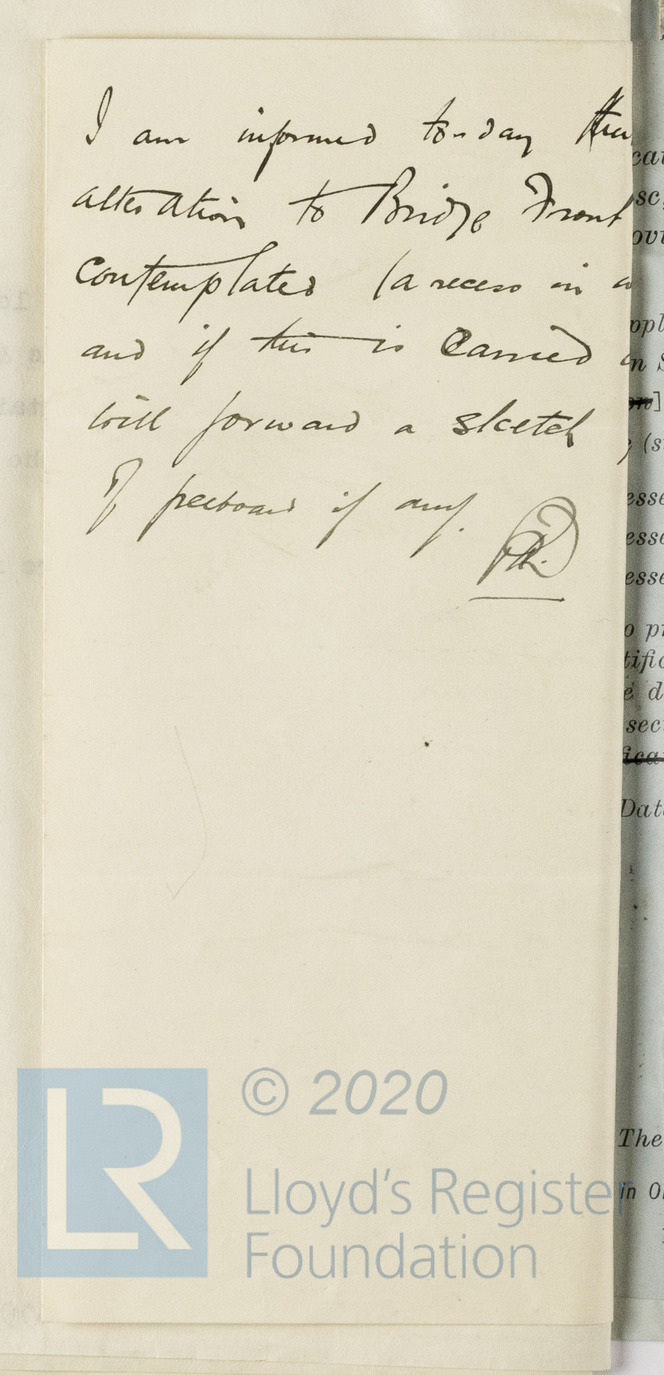 I am informed to-day
alteration to Bridge Front
contemplated (a recess in
and if this is carried
will forward a sketch
of freeboard if any.
LR
© 2020
Lloyd's Register
Foundation
Date
The
in